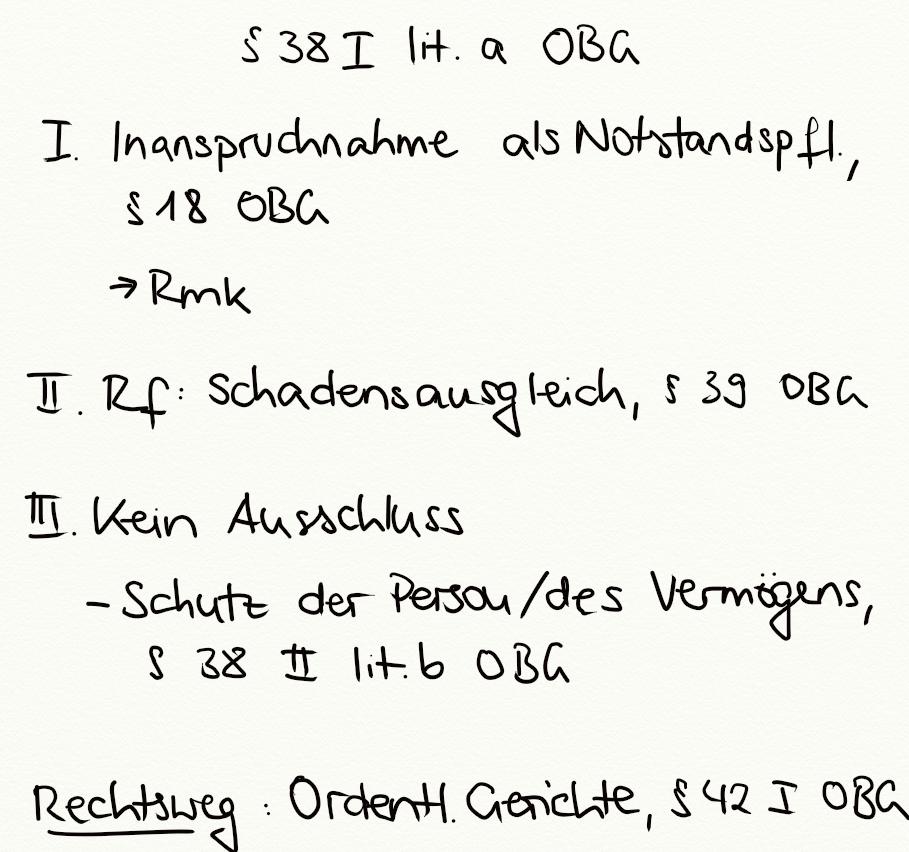 § 38 I lit. a OBG
I. Inanspruchnahme als Notstandspfl.,
§ 18 OBG
→ Rmk
II. Rf: Schadensausgleich, § 39 OBG
III. Kein Ausschluss
- Schutz der Person/des Vermögens,
§ 38 II lit. b OBG
Rechtsweg: Ordentl. Gerichte, § 42 I OBG